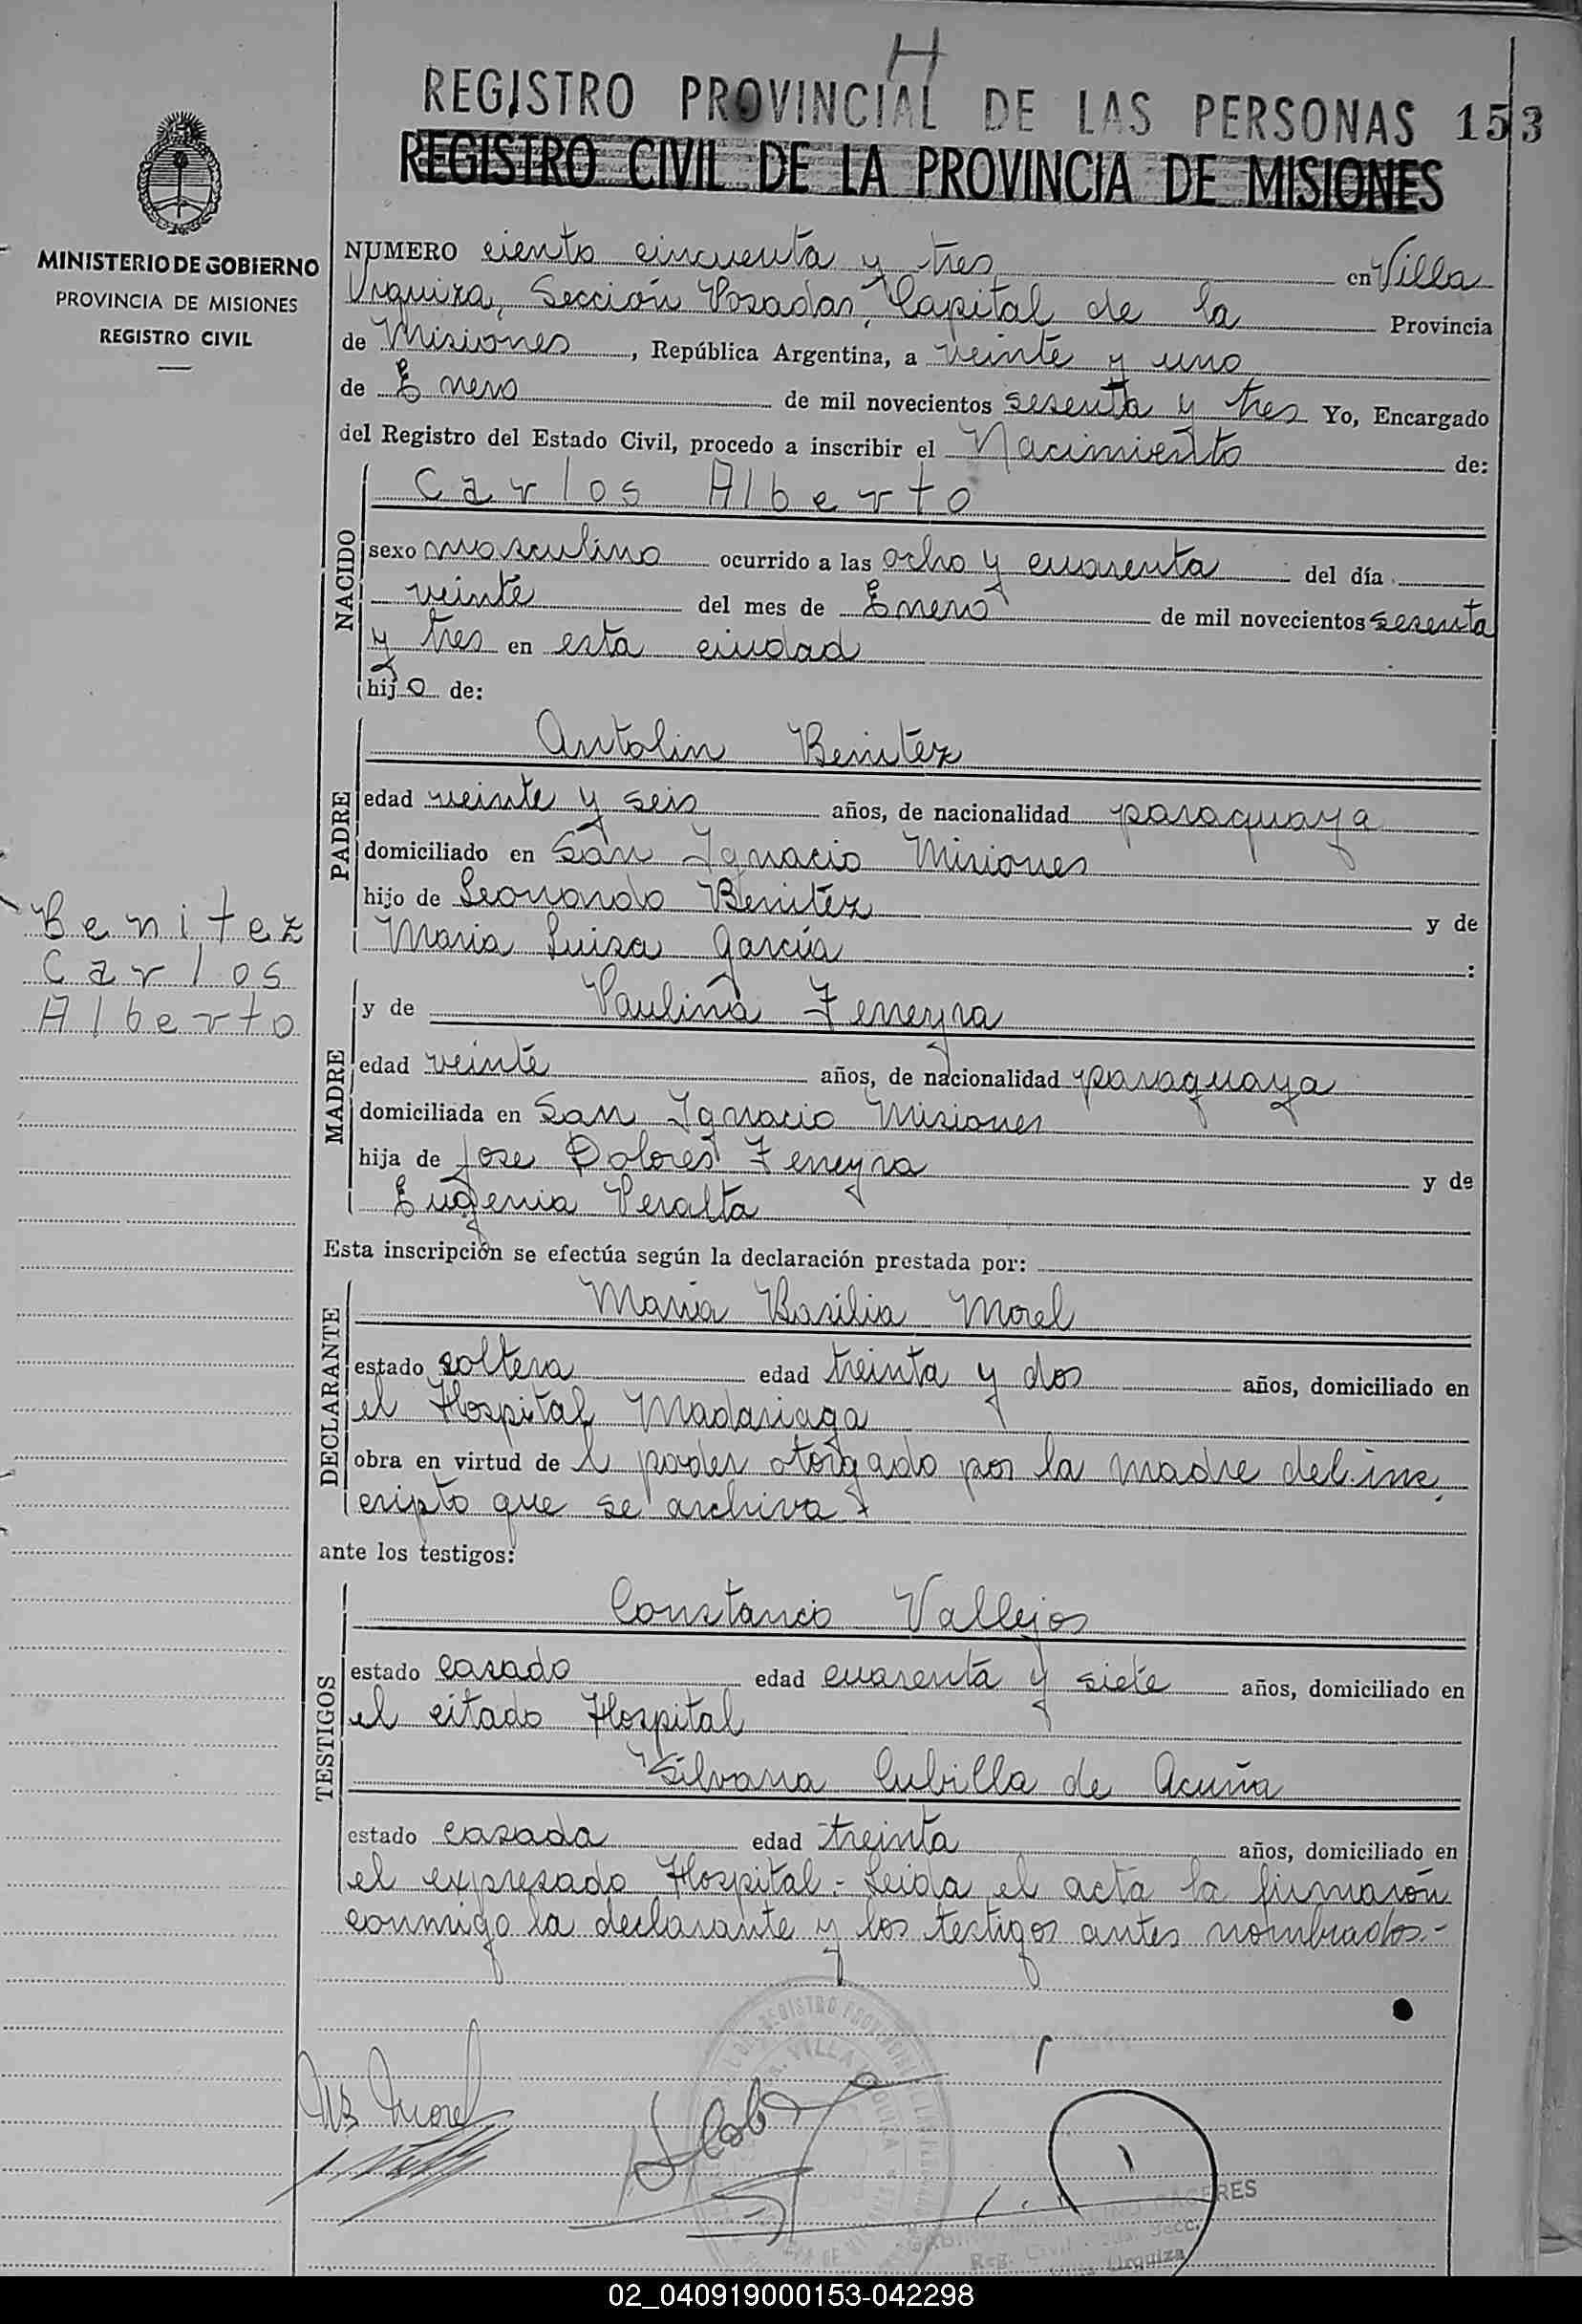 H
REGISTRO PROVINCIAL DE LAS PERSONAS 153
REGISTRO CIVIL DE LA PROVINCIA DE MISIONES
MINISTERIO DE GOBIERNO
PROVINCIA DE MISIONES
REGISTRO CIVIL
NUMERO ciento cincuenta y tres en Villa
Urquiza, Sección Posadas, Capital de la Provincia
de Misiones, República Argentina, a veinte y uno
de Enero de mil novecientos sesenta y tres Yo, Encargado
del Registro del Estado Civil, procedo a inscribir el Nacimiento de:
NACIDO
Carlos Alberto
sexo masculino ocurrido a las ocho y cuarenta del día
veinte del mes de Enero de mil novecientos sesenta
y tres en esta ciudad
hijo de:
PADRE
Antolin Benitez
edad veinte y seis años, de nacionalidad paraguaya
domiciliado en San Ignacio Misiones
hijo de Leonardo Benitez y de
Maria Luisa Garcia :
Benitez
Carlos
Alberto
MADRE
y de Paulina Ferreyra
edad veinte años, de nacionalidad paraguaya
domiciliada en San Ignacio Misiones
hija de Jose Dolores Ferreyra y de
Eugenia Peralta
Esta inscripción se efectúa según la declaración prestada por:
DECLARANTE
Maria Basilia Morel
estado soltera edad treinta y dos años, domiciliado en
el Hospital Madariaga
obra en virtud de l poder otorgado por la madre del ins
cripto que se archiva
ante los testigos:
TESTIGOS
Constancio Vallejos
estado casado edad cuarenta y siete años, domiciliado en
el citado Hospital
Silvana Cubilla de Acuña
estado casada edad treinta años, domiciliado en
el expresado Hospital.- Leida el acta la firmaron
conmigo la declarante y los testigos antes nombrados.-
MB Morel
CACERES
Reg. Civil
Villa Urquiza
02_040919000153-042298